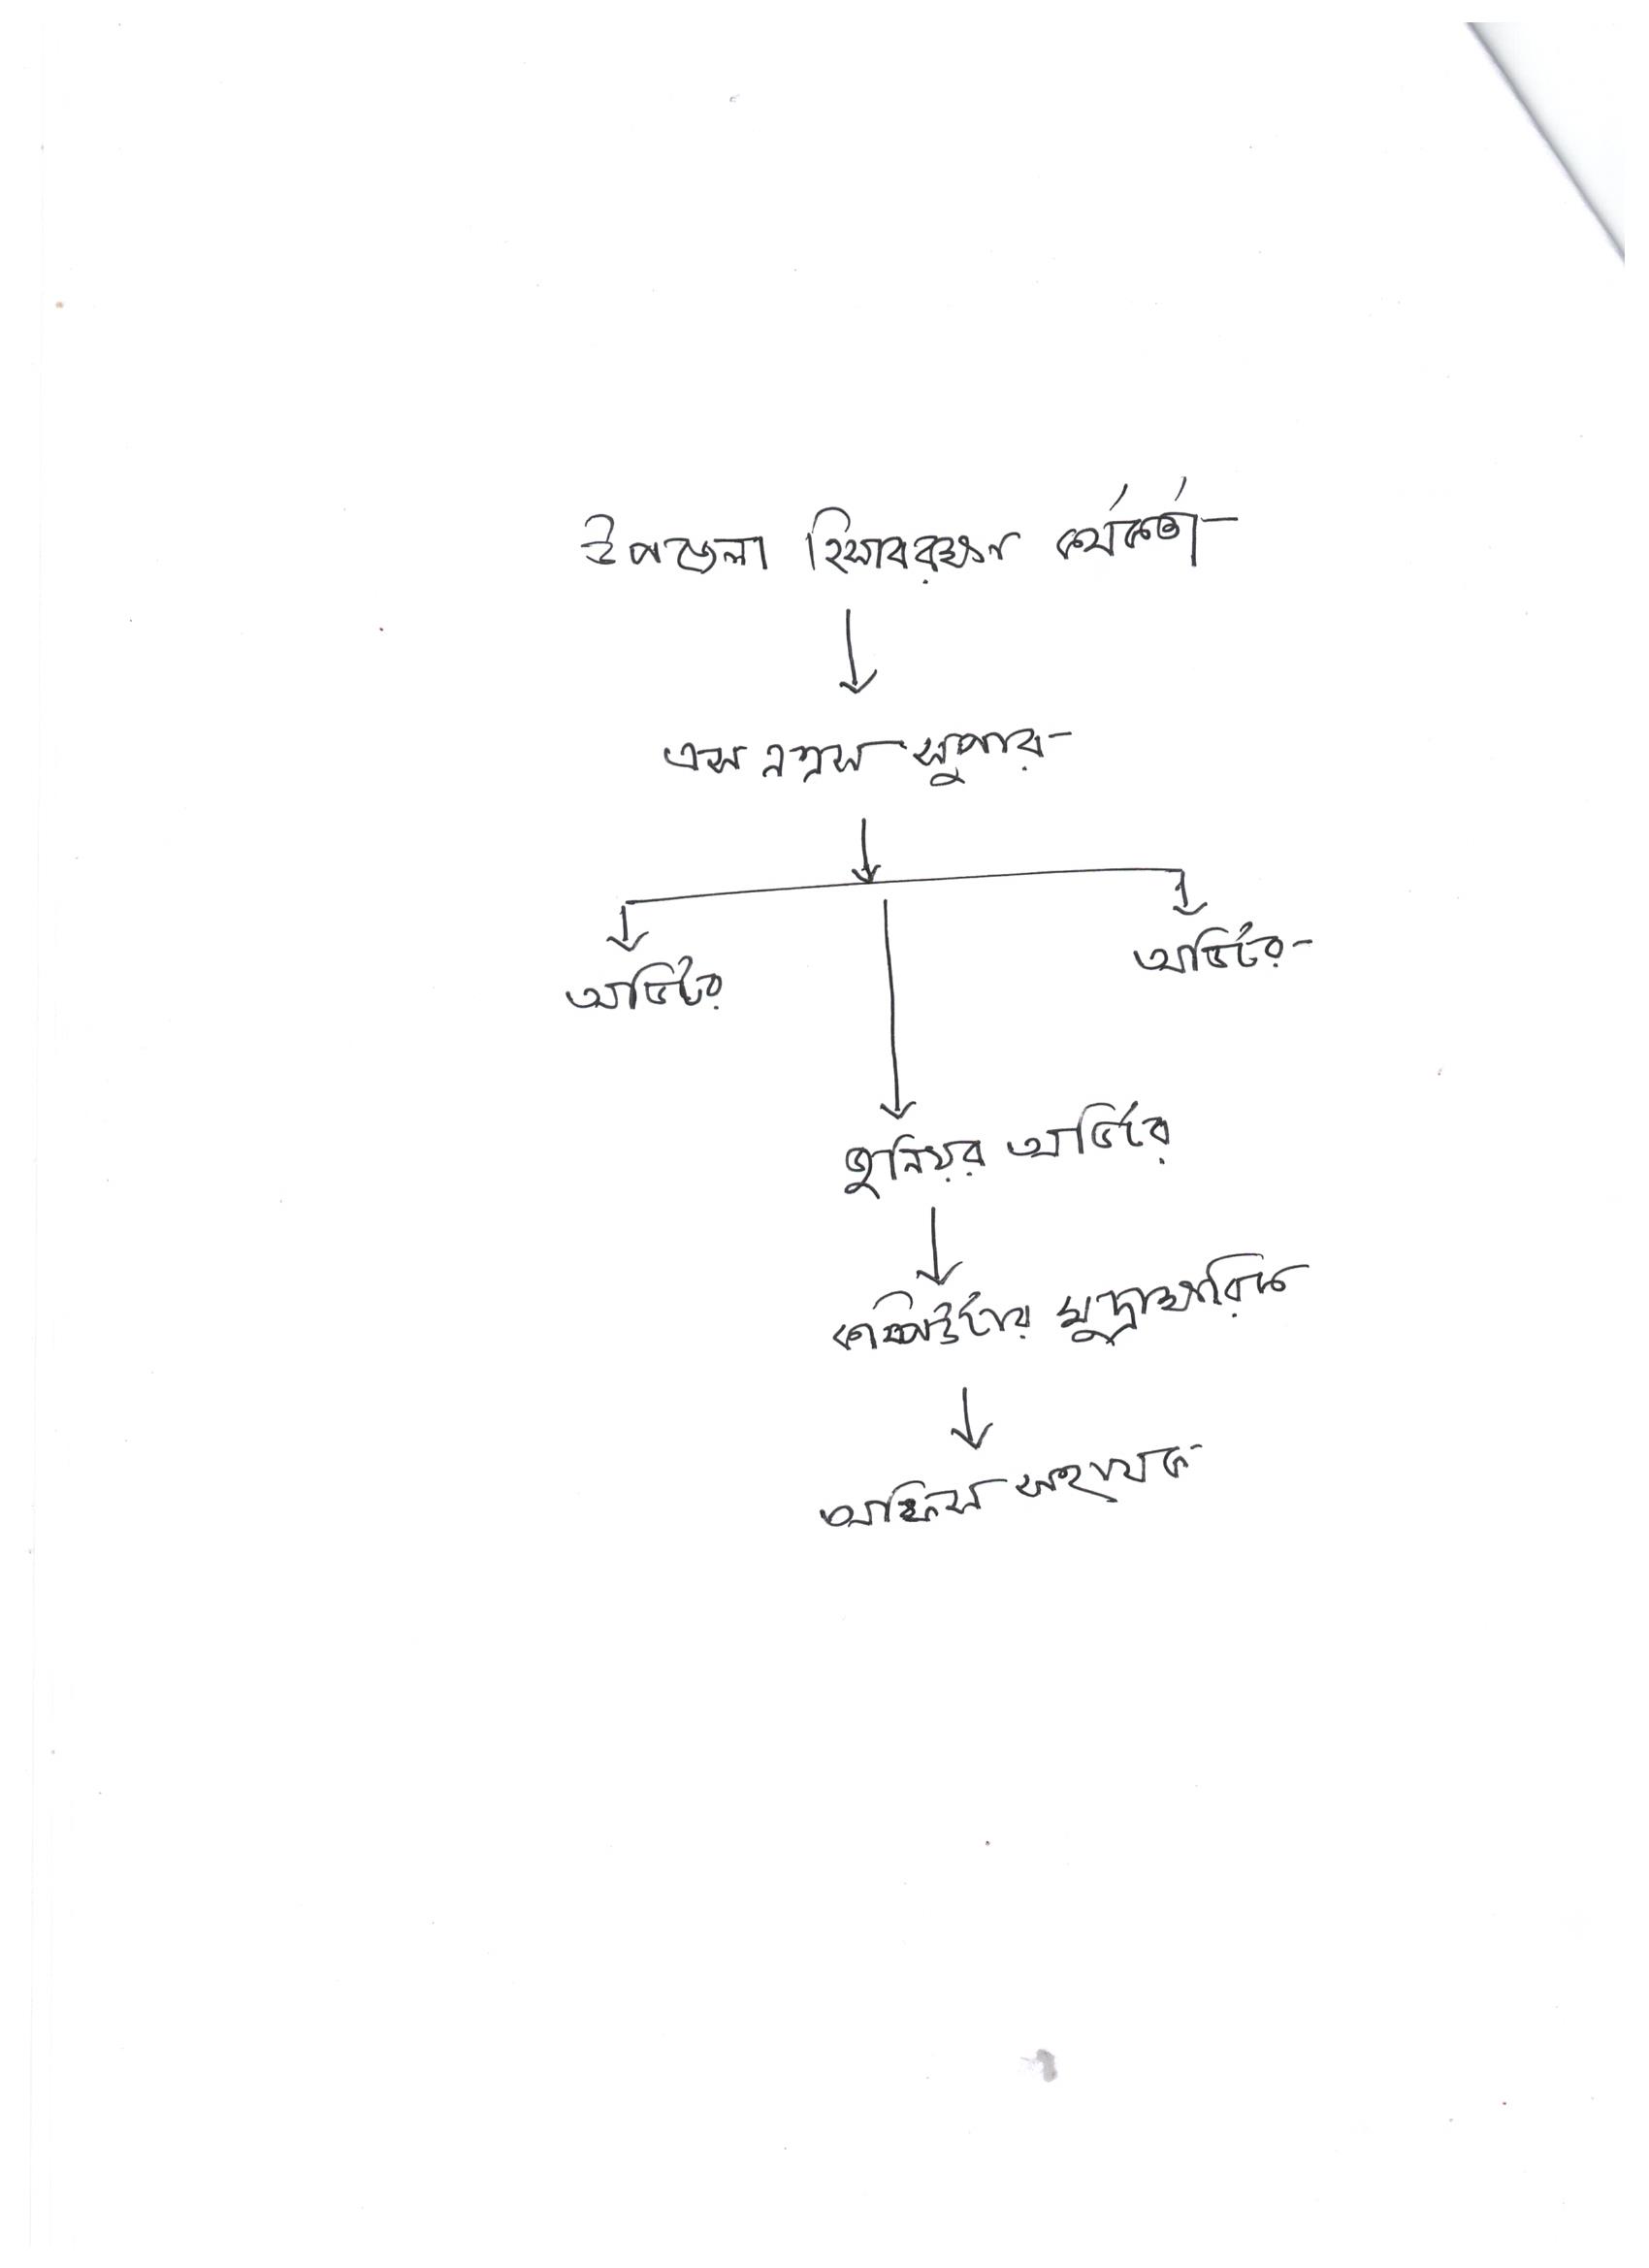 উপজেলা হিসাবরক্ষণ কর্মকর্তা
এস এ এস সুপার
অডিটর
অডিটর
জুনিয়র অডিটর
কম্পিউটার মুদ্রাক্ষরিক
অফিস সহায়ক